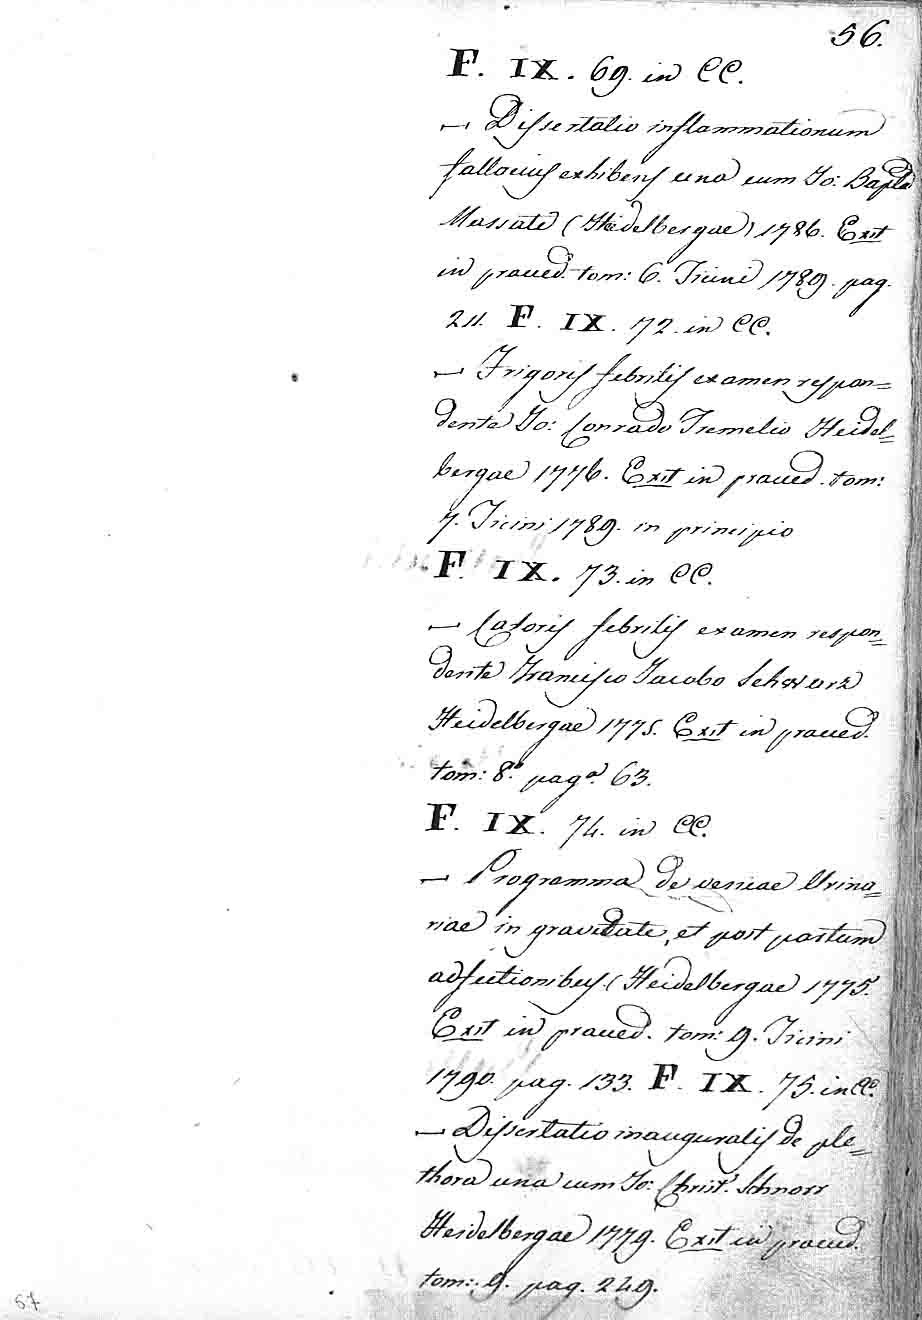 56.
F. IX. 69. in CC.
— Dissertatio inflammationum
fallacius exhibens una cum Jo: Bapta
Massate (Heidelbergae) 1786. Exit
in praeced. tom: 6. Ticini 1789. pag.
211. F. IX. 72. in CC.
— Frigoris febrilis examen respon=
dente Jo: Conrado Tremelio Heidel=
bergae 1776. Exit in praeced. tom:
7. Ticini 1789. in principio
F. IX. 73. in CC.
— Caloris febrilis examen respon=
dente Francisco Jacobo Schwarz
Heidelbergae 1775. Exit in praeced.
tom: 8.° pag.ª 63.
F. IX. 74. in CC.
— Programma de vesicae Urina=
riae in graviditate, et post partum
adfectionibus. (Heidelbergae 1775.
Exit in praeced. tom: 9. Ticini
1790. pag. 133. F. IX. 75. in CC.
— Dissertatio inauguralis de ple=
thora una cum Jo: Christ. Schnorr
Heidelbergae 1779. Exit in praeced.
tom: 9. pag. 249.
57